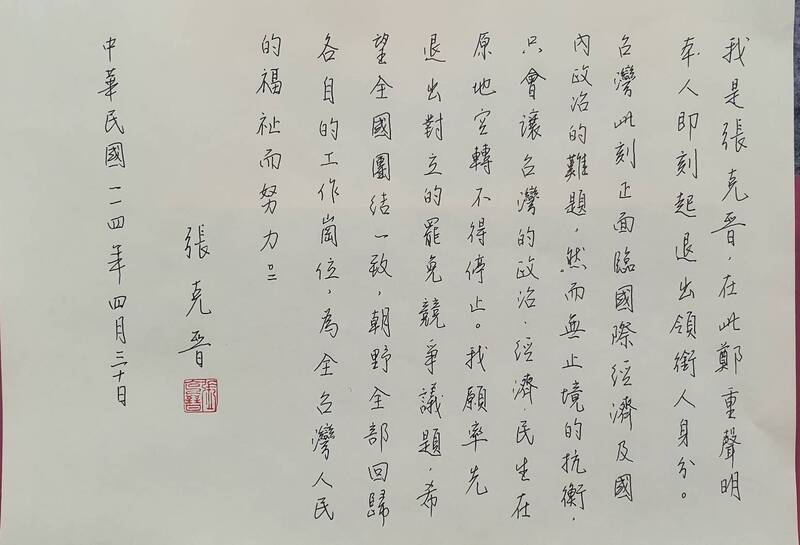 我是張克晉，在此鄭重聲明
本人即刻起退出領銜人身分。
台灣此刻正面臨國際經濟及國
內政治的難題，然而無止境的抗衡，
只會讓台灣的政治．經濟．民生在
原地空轉不得停止。我願率先
退出對立的罷免競爭議題，希
望全國團結一致，朝野全部回歸
各自的工作崗位，為全台灣人民
的福祉而努力。
張克晉
張克晉
中華民國一一四年四月三十日